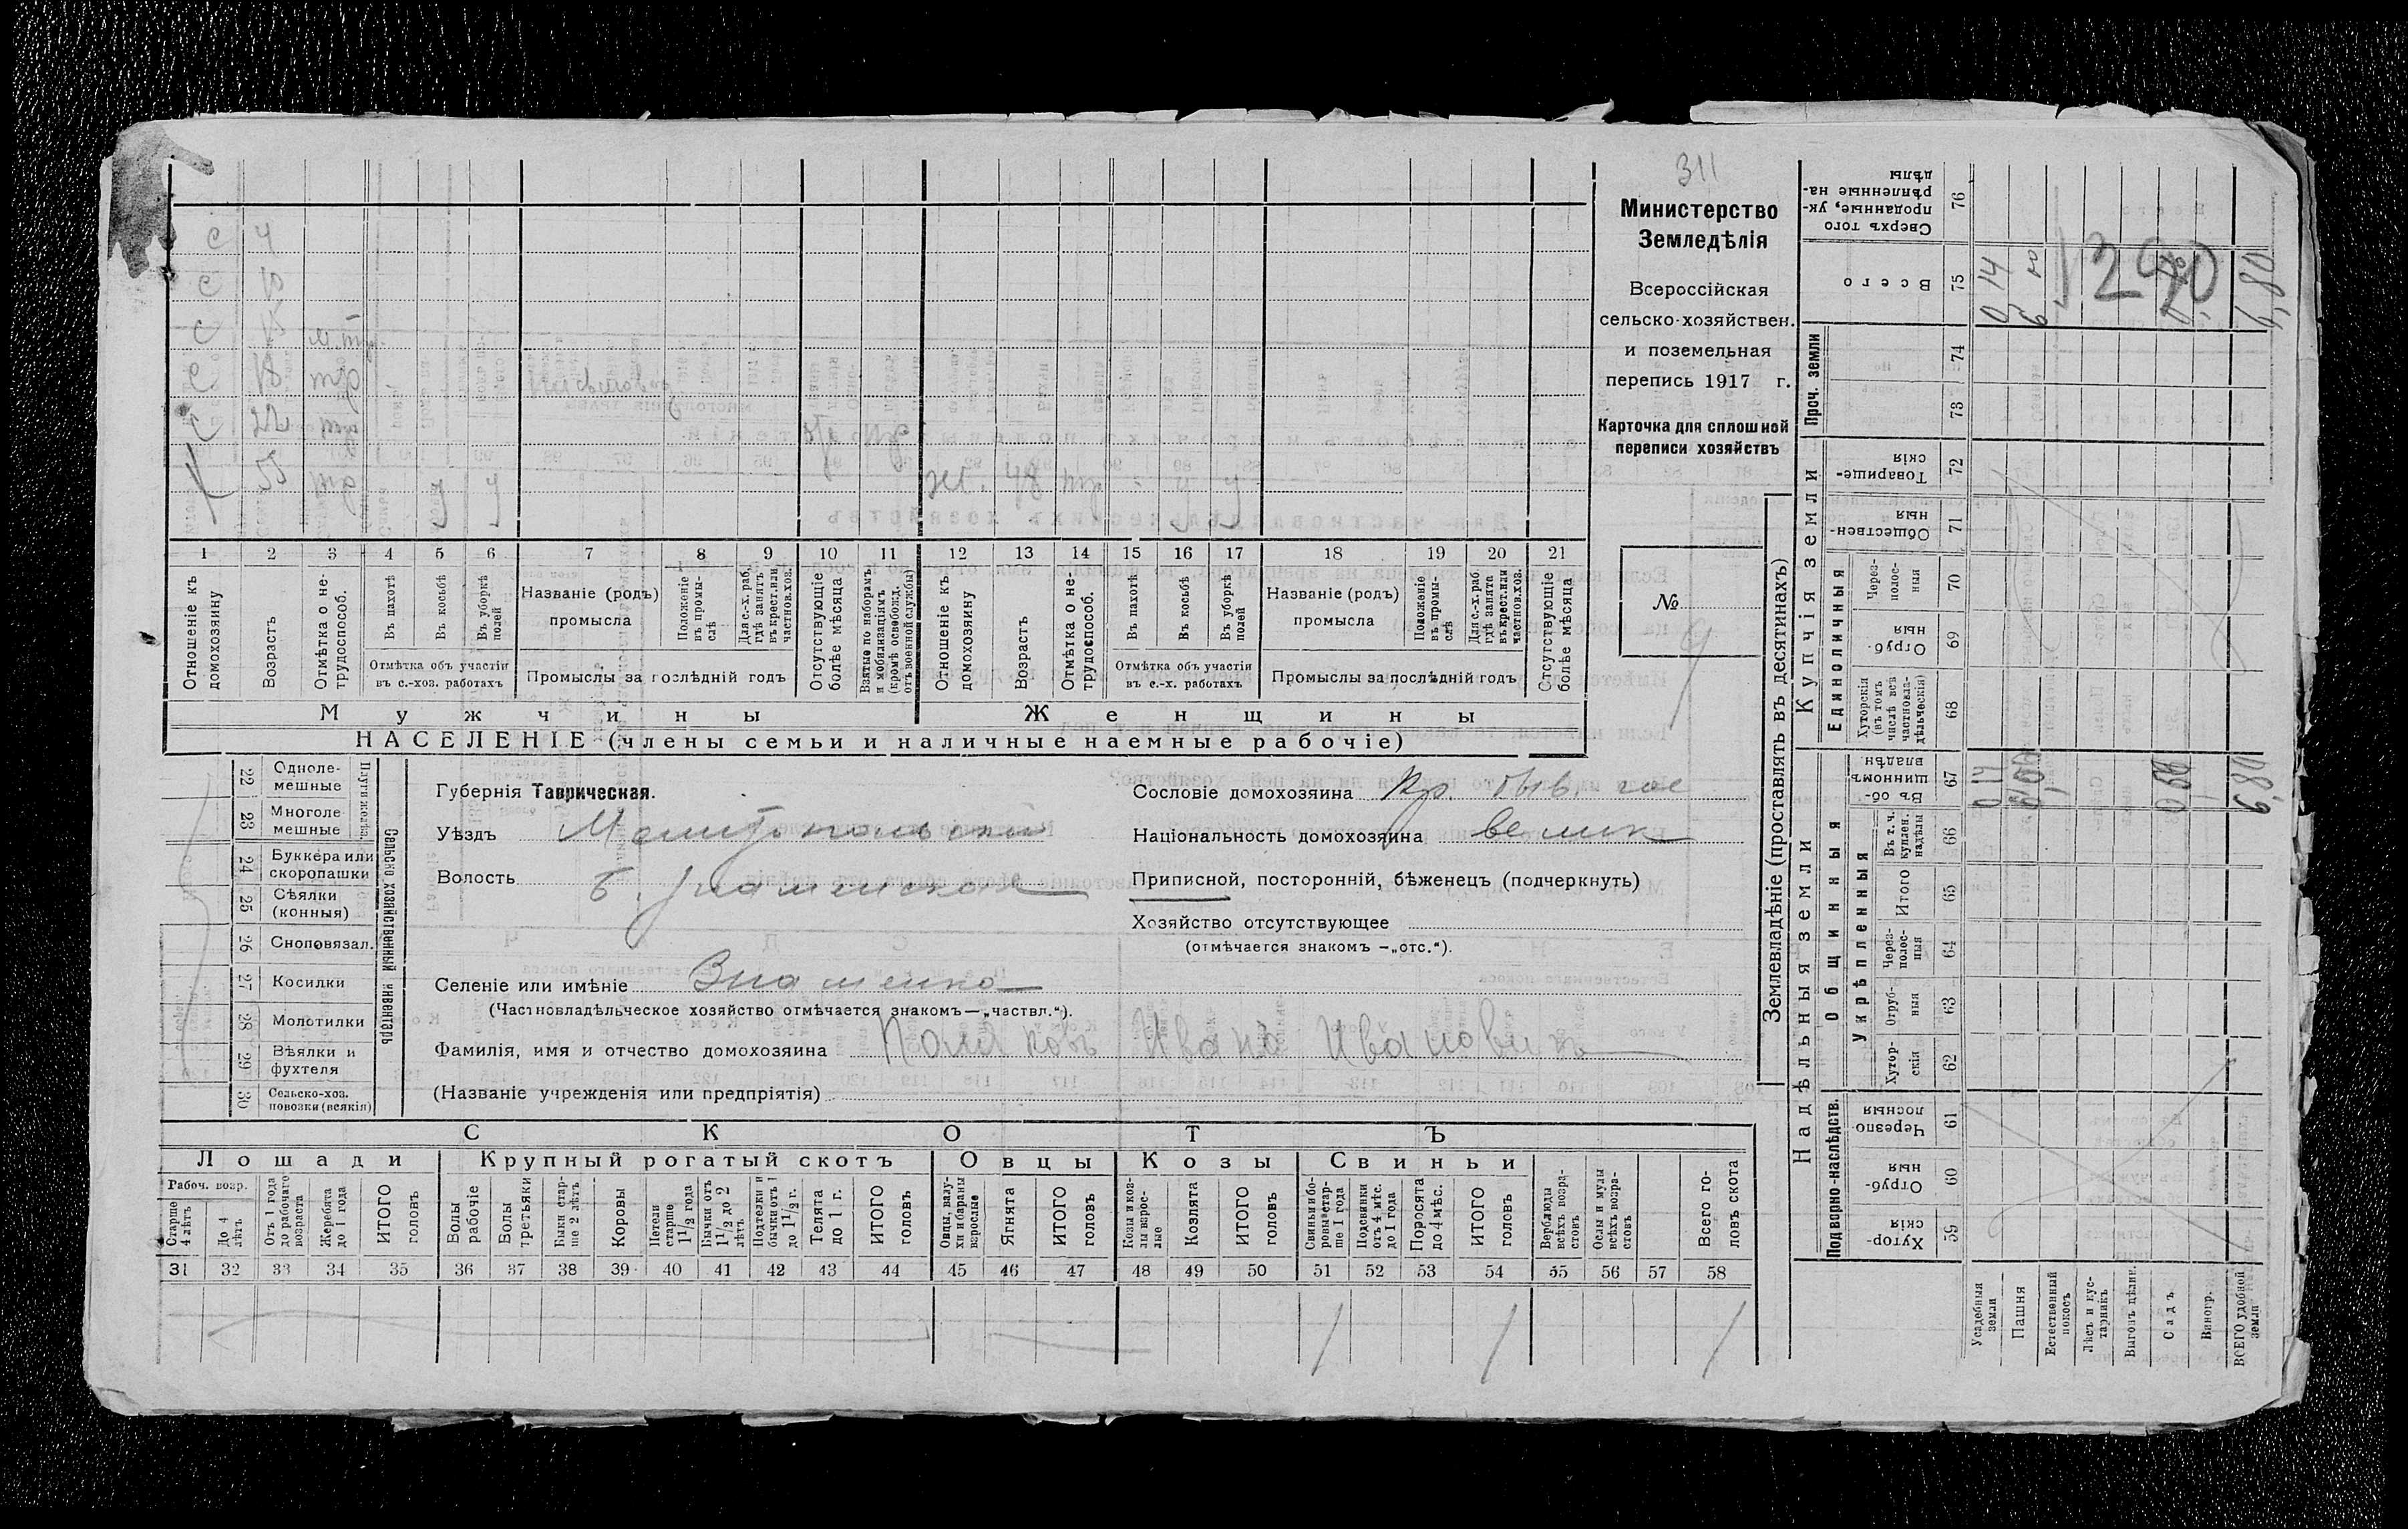 311
Министерство
Земледѣлія
Всероссійская
сельско-хозяйствен.
и поземельная
перепись 1917 г.
Карточка для сплошной
переписи хозяйствъ
№
с 4
с 10
с 15 м.тр.
с 18 тр
с 22 тр
55 тр у у ж. 48 тр - у у
1 2 3 4 5 6 7 8 9 10 11 12 13 14 15 16 17 18 19 20 21
Отношеніе къ домохозяину
Возрастъ
Отмѣтка о не-трудоспособ.
Въ пахотѣ
Въ косьбѣ
Въ уборкѣ полей
Отмѣтка объ участіи въ с.-хоз. работахъ
Названіе (родъ) промысла
Положеніе въ промы-слѣ
Для с.-х. раб., гдѣ занятъ въ крест. или частнов. хоз.
Промыслы за послѣдній годъ
Отсутствующіе болѣе мѣсяца
Взятые по наборамъ и мобилизаціямъ (кромѣ освобожд. отъ военной службы)
Отношеніе къ домохозяину
Возрастъ
Отмѣтка о не-трудоспособ.
Въ пахотѣ
Въ косьбѣ
Въ уборкѣ полей
Отмѣтка объ участіи въ с.-х. работахъ
Названіе (родъ) промысла
Положеніе въ промы-слѣ
Для с.-х. раб. гдѣ занята въ крест. или частнов. хоз.
Промыслы за послѣдній годъ
Отсутствующіе болѣе мѣсяца
Мужчины Женщины
НАСЕЛЕНІЕ (члены семьи и наличные наемные рабочіе)
Сельско хозяйственный инвентарь
22 Одноле-мешные
23 Многоле мешные
24 Буккера или скоропашки
25 Сѣялки (конныя)
26 Сноповязал.
27 Косилки
28 Молотилки
29 Вѣялки и фухтеля
30 Сельско-хоз. повозки (всякія)
Губернія Таврическая.
Уѣздъ Мелитопольскій
Волость Б. Знаменская
Селеніе или имѣніе Знаменка
(Частновладѣльческое хозяйство отмѣчается знакомъ—„частвл.“).
Фамилія, имя и отчество домохозяина Поляковъ Иванъ Ивановичъ
(Названіе учрежденія или предпріятія)
Сословіе домохозяина Кр. быв. гос
Національность домохозяина велик
Приписной, посторонній, бѣженецъ (подчеркнуть)
Хозяйство отсутствующее
(отмѣчается знакомъ —„отс.“).
СКОТЪ
Лошади Крупный рогатый скотъ Овцы Козы Свиньи
Рабоч. возр.
Старше 4 лѣтъ
До 4 лѣтъ
Отъ 1 года до рабочаго возраста
Жеребята до 1 года
ИТОГО головъ
Волы рабочіе
Волы третьяки
Быки стар-ше 2 лѣтъ
Коровы
Нетели старше 1 1/2 года
Бычки отъ 1 1/2 до 2 лѣтъ
Подтелки и бычки отъ 1 до 1 1/2 г.
Телята до 1 г.
ИТОГО головъ
Овцы, валу-хи и бараны взрослые
Ягнята
ИТОГО головъ
Козы и коз-лы взрос-лые
Козлята
ИТОГО головъ
Свиньи и бо-ровы стар-ше 1 года
Подсвинки отъ 4 мѣс. до 1 года
Поросята до 4 мѣс.
ИТОГО головъ
Верблюды всѣхъ возра-стовъ
Ослы и мулы всѣхъ возра-стовъ
Всего го-ловъ скота
31 32 33 34 35 36 37 38 39 40 41 42 43 44 45 46 47 48 49 50 51 52 53 54 55 56 57 58
Землевладѣніе (проставлять въ десятинахъ)
Надѣльныя земли Купчія земли Проч. земли
Подворно-наслѣдств. Общинныя Единоличныя
Укрѣпленныя
Хутор-скія 59
Отруб-ныя 60
Черезпо-лосныя 61
Хутор-скія 62
Отруб-ныя 63
Через-полос-ныя 64
Итого 65
Въ т. ч. куплен. надѣлы 66
Въ об-щинномъ владѣн. 67
Хуторскія (въ томъ числѣ всѣ частновла-дѣльческія) 68
Отруб-ныя 69
Через-полос-ныя 70
Обществен-ныя 71
Товарище-скія 72
73
74
Всего 75
Сверхъ того проданные, ук-рѣпленные на-дѣлы 76
Усадебныя земли 0,14 0,14
Пашня
Естественный покосъ
Лѣсъ и кус-тарникъ
Выгонъ цѣлин.
Садъ
Виногр.
ВСЕГО удобной земли 6,80 6,80
1290